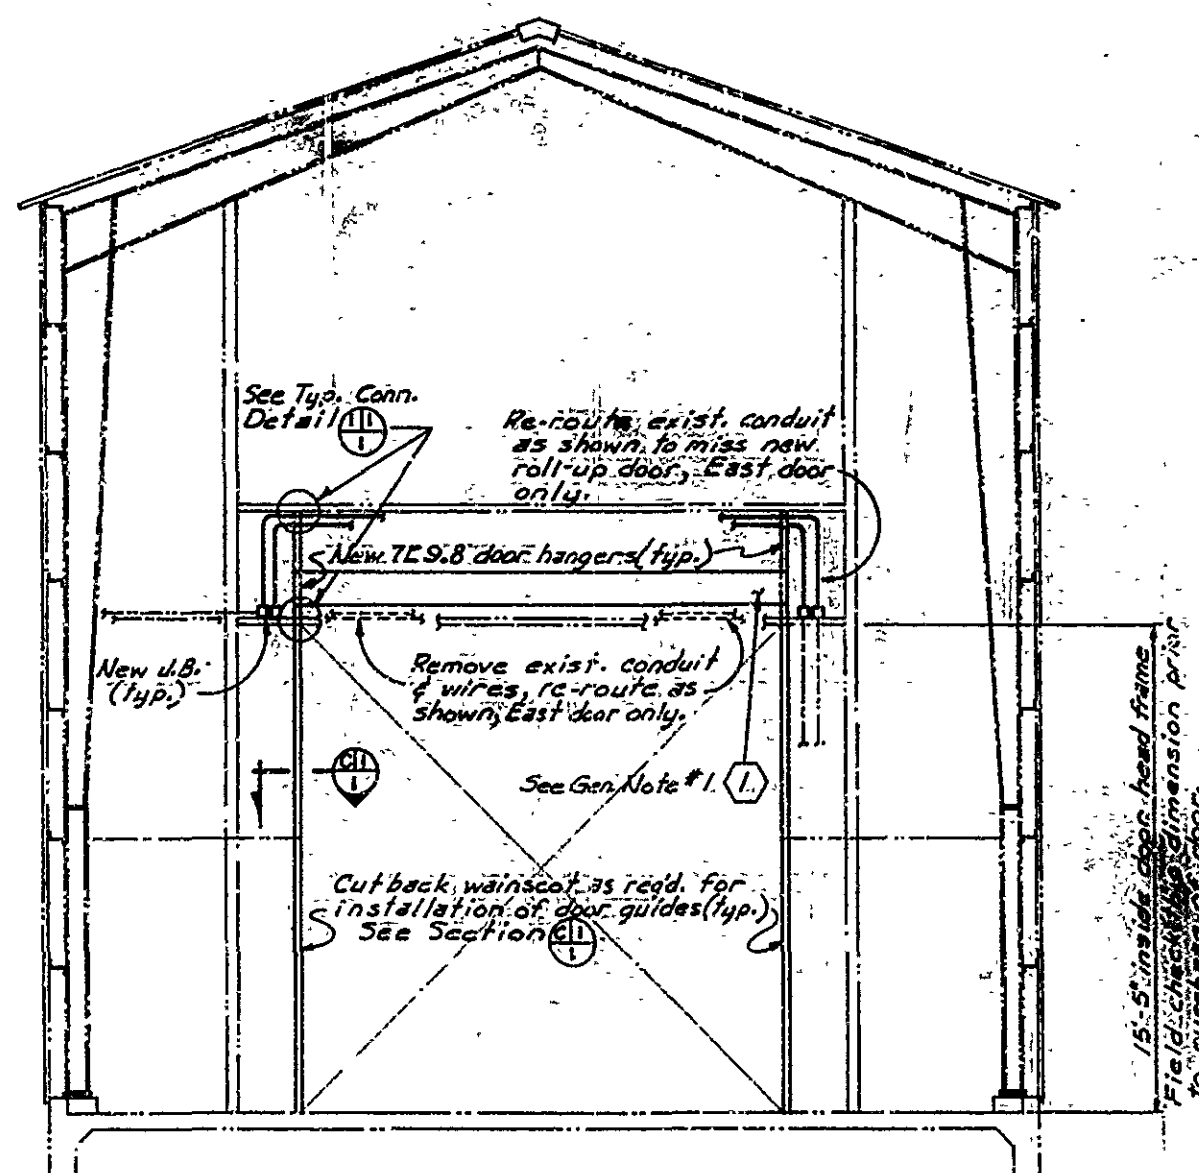 See Typ. Conn.
Detail 1 1
1
Re-route exist. conduit
as shown to miss new
roll-up door, East door
only.
New 7[9.8 door hangers (typ.)
New J.B.
(typ.)
Remove exist. conduit
& wires, re-route as
shown, East door only.
C 1
1
See Gen. Note #1. 1.
Cut back wainscot as req'd. for
installation of door guides (typ.)
See Section C 1
1
15'-5" inside door head frame
Field check this dimension prior
to purchasing door.